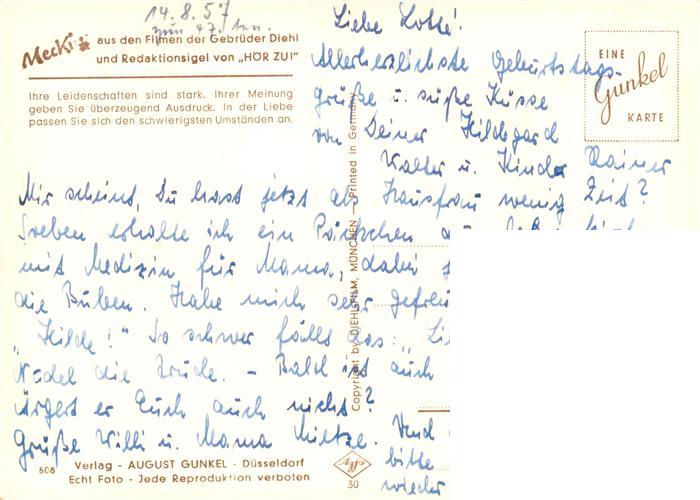 14.8.57
zum 47. ten.
Mecki aus den Filmen der Gebrüder Diehl
und Redaktionsigel von „HÖR ZU!"
Ihre Leidenschaften sind stark. Ihrer Meinung
geben Sie überzeugend Ausdruck. In der Liebe
passen Sie sich den schwierigsten Umständen an.
EINE
Gunkel
KARTE
Liebe Lotte!
Allerherzlichste Geburtstags-
grüße u. süße Küsse
von Deiner Hildegard
Walter u. Kinder Rainer
Mir scheint, Du hast jetzt als Hausfrau wenig Zeit?
Soeben erhalte ich ein Päckchen
mit Medizin für Mama, dabei
die Buben. Habe mich sehr gefreu
„Hilde!" So schwer fälls das: „Li
Nudel die Trude. – Bald ist auch
ärgert er Euch auch nicht?
Grüße Willi u. Mama Mietze. Und
bitte
wieder
Copyright by DIEHLFILM, MÜNCHEN – Printed in Germany
508
Verlag - AUGUST GUNKEL - Düsseldorf
Echt Foto - Jede Reproduktion verboten
Agfa
30